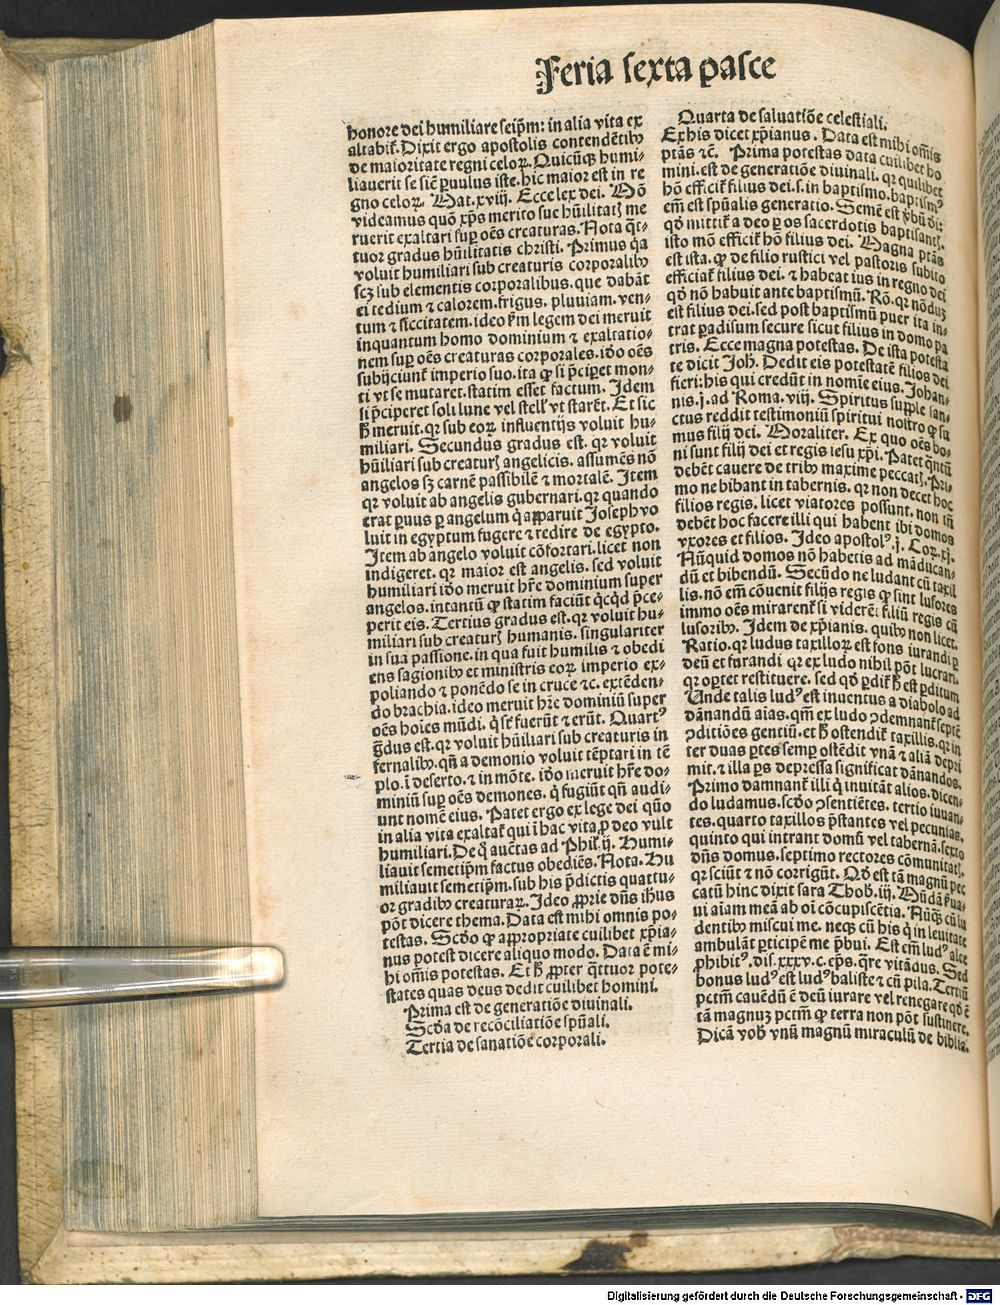 Feria sexta pasce
honore dei humiliare seip̄m: in alia vita ex
altabit᷑. Dixit ergo apostolis contendētibꝰ
de maioritate regni celoꝝ. Quicūqꝫ humi-
liauerit se sic̄ ꝑuulus iste. hic maior est in re
gno celoꝝ. Mat. xviij. Ecce lex dei. Mō
videamus quō xp̄s merito sue hūilitatꝭ me
ruerit exaltari suꝑ oēs creaturas. Nota q̄t-
tuor gradus hūilitatis christi. Primus q̄a
voluit humiliari sub creaturis corporalibꝰ
scꝫ sub elementis corporalibus. que dabāt
ei tedium ⁊ calorem. frigus. pluuiam. ven-
tum ⁊ siccitatem. ideo ẜm legem dei meruit
inquantum homo dominium ⁊ exaltatio-
nem suꝑ oēs creaturas corporales. iđo oēs
subijciunt᷑ imperio suo. ita ꝙ si p̄ciꝑet mon-
ti vt se mutaret. statim esset factum. Idem
si p̄ciperet soli lune vel stell̄ vt starēt. Et sic
ħ meruit. qꝛ sub eoꝝ influentijs voluit hu-
miliari. Secundus gradus est. qꝛ voluit
hūiliari sub creaturꝭ angelicis. assumēs nō
angelos sꝫ carnē passibilē ⁊ mortalē. Item
qꝛ voluit ab angelis gubernari. qꝛ quando
erat ꝑuus ꝑ angelum q̄ apparuit Joseph vo
luit in egyptum fugere ⁊ redire de egypto.
Item ab angelo voluit cōfortari. licet non
indigeret. qꝛ maior est angelis. sed voluit
humiliari iđo meruit hr̄e dominium super
angelos. intantū ꝙ statim faciūt q̄cq̄d p̄ce-
perit eis. Tertius gradus est. qꝛ voluit hu-
miliari sub creaturꝭ humanis. singulariter
in sua passione. in qua fuit humilis ⁊ obedi
ens sagionibꝰ et ministris eoꝝ imperio ex-
poliando ⁊ ponēdo se in cruce ⁊c. extēden-
do brachia. ideo meruit hr̄e dominiū super
oēs hoīes mūdi. q̄ sr̄ fuerūt ⁊ erūt. Quartꝰ
g̊dus est. qꝛ voluit hūiliari sub creaturis in
fernalibꝰ. qn̄ a demonio voluit tēptari in tē
plo. ī deserto. ⁊ in mōte. iđo meruit hr̄e do-
miniū suꝑ oēs demones. q̄ fugiūt qn̄ audi-
unt nomē eius. Patet ergo ex lege dei quō
in alia vita exaltat᷑ qui ī hac vita ꝓ deo vult
humiliari. De q̄ auc̄tas ad Phil̄. ij. Humi-
liauit semetip̄m factus obediēs. Nota. Hu
miliauit semetip̄m. sub his p̄dictis quattu-
or gradibꝰ creaturaꝝ. Ideo ꝓprie dn̄s ih̄us
pōt dicere thema. Data est mihi omnis po-
testas. Scđo ꝙ appropriate cuilibet xp̄ia-
nus potest dicere aliquo modo. Data ē mi-
hi om̄is potestas. Et ħ ꝓpter q̄ttuoꝛ pote-
states quas deus dedit cuilibet homini.
Prima est de generatiōe diuinali.
Scđa de recōciliatiōe sp̄uali.
Tertia de sanatiōe corporali.
Quarta de saluatiōe celestiali.
Ex his dicet xp̄ianus. Data est mihi om̄is
ptās ⁊c̄. Prima potestas data cuilibet ho
mini. est de generatiōe diuinali. qꝛ quilibet
hō effic̄it᷑ filius dei. s. in baptismo. baptismꝰ
em̄ est sp̄ualis generatio. Semē est v̄bū di:
qđ mittit᷑ a deo ꝑ os sacerdotis baptisantꝭ.
isto mō efficit᷑ hō filius dei. Magna ptās
est ista. ꝙ de filio rustici vel pastoris subito
efficiat᷑ filius dei. ⁊ habeat ius in regno dei
qđ nō habuit ante baptismū. Rō. qꝛ nōduꝫ
est filius dei. sed post baptismū puer ita in-
trat ꝑadisum secure sicut filius in domo pa
tris. Ecce magna potestas. De ista potesta
te dicit Joh̄. Dedit eis potestatē filios dei
fieri: his qui credūt in nomīe eius. Johan-
nis. j. ad Roma. viij. Spiritus supple san-
ctus reddit testimoniū spiritui nostro ꝙ su
mus filij dei. Moraliter. Ex quo oēs bo-
ni sunt filij dei et regis iesu xp̄i. Patet qn̄tū
debēt cauere de tribꝰ maxime peccatꝭ. Pri-
mo ne bibant in tabernis. qꝛ non decet hoc
filios regis. licet viatores possunt. non tn̄
debēt hoc facere illi qui habent ibi domos
vxores et filios. Ideo apostolꝰ. j. Coꝝ. xj.
Nūquid domos nō habetis ad māducan-
dū et bibendū. Secūdo ne ludant cū taxil
lis. nō em̄ cōuenit filijs regis ꝙ sint lusores
immo oēs mirarent᷑ si viderēt filiū regis cū
lusoribꝰ. Idem de xp̄ianis. quibꝰ non licet.
Ratio. qꝛ ludus taxilloꝝ est fons iurandi ꝑ
deū et furandi qꝛ ex ludo nihil pōt lucrari.
qꝛ optet restituere. sed qđ ꝑdit᷑ ħ est ꝑditum
Unde talis ludꝰ est inuentus a diabolo ad
dānandū aīas. qm̄ ex ludo ꝯdemnant᷑ septē
ꝯditiōes gentiū. et ħ ostendit᷑ taxillis. qꝛ in
ter duas ꝑtes semꝑ ostēdit vnā ⁊ aliā depri
mit. ⁊ illa ꝑs depressa significat dānandos.
Primo damnant᷑ illi q̄ inuitāt alios. dicen-
do ludamus. scđo ꝯsentiētes. tertio iuuan-
tes. quarto taxillos p̄stantes vel pecunias.
quinto qui intrant domū vel tabernā. sexto
dn̄s domus. septimo rectores cōmunitatꝭ.
qꝛ sciūt ⁊ nō corrigūt. Qđ est tā magnū pec
catū hinc dixit sara Thob. iij. Mūdā ẜua-
ui aīam meā ab oī cōcupiscētia. Nūqꝫ cū lu
dentibꝰ miscui me. neqꝫ cū his q̄ in leuitate
ambulāt ꝑticipē me p̄bui. Est em̄ ludꝰ alee
ꝓhibitꝰ. dis. xxxv. c. ep̄s. q̄re vitādus. Sed
bonus ludꝰ est ludꝰ baliste ⁊ cū pila. Tertiū
pctm̄ cauēdū ē deū iurare vel renegare qđ ē
tā magnuꝫ pctm̄ ꝙ terra non pōt sustinere.
Dicā vob̄ vnū magnū miraculū de biblia.
Digitalisierung gefördert durch die Deutsche Forschungsgemeinschaft - DFG